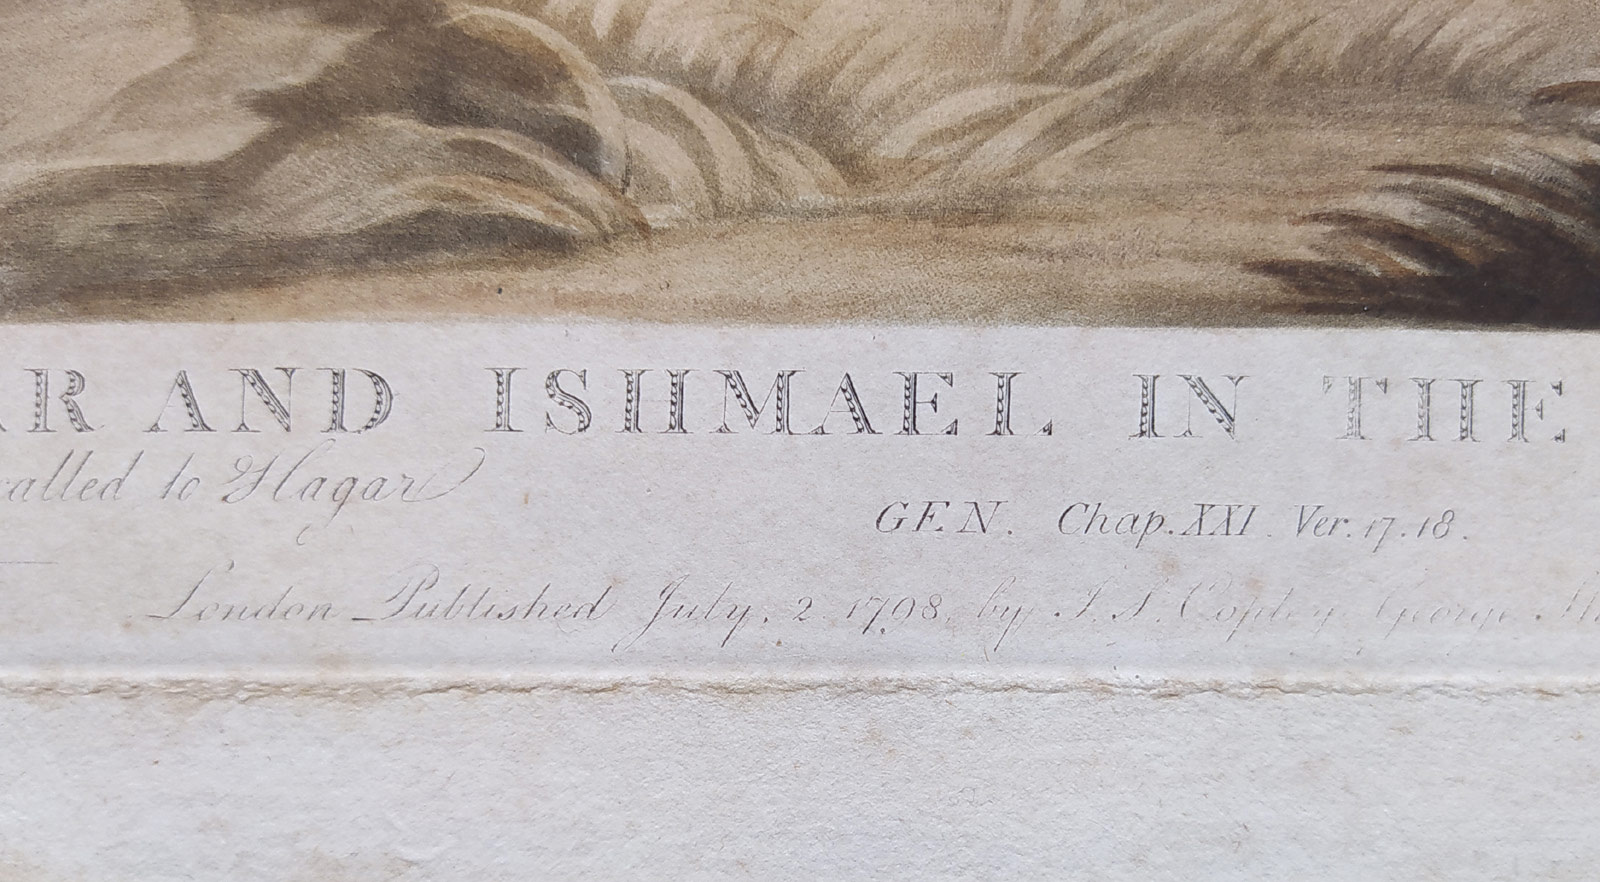 R AND ISHMAEL IN THE
called to Hagar
GEN. Chap. XXI. Ver. 17. 18.
London Published July, 2 1798, by J. S. Copley George